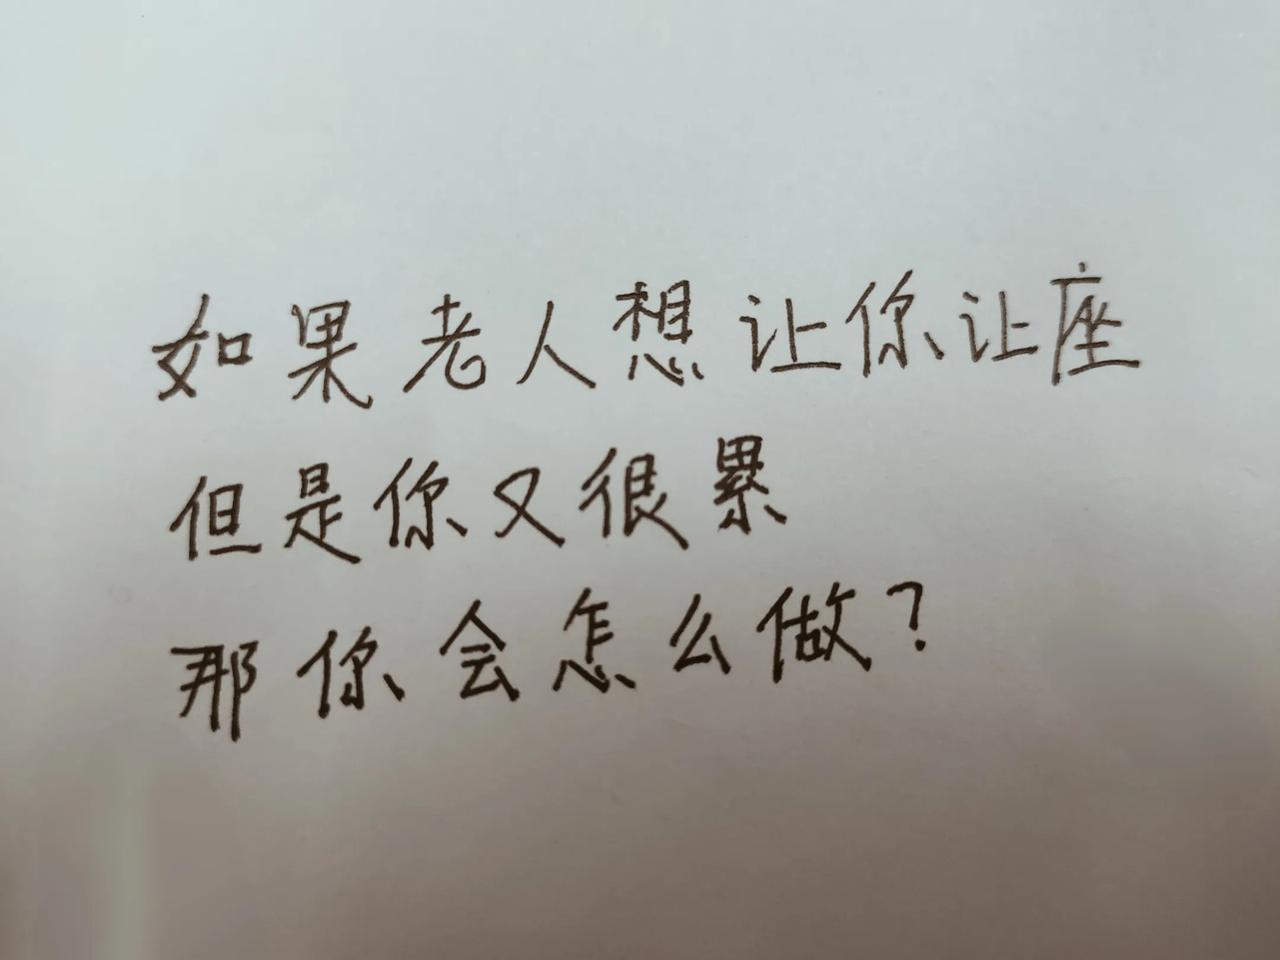 如果老人想让你让座
但是你又很累
那你会怎么做？